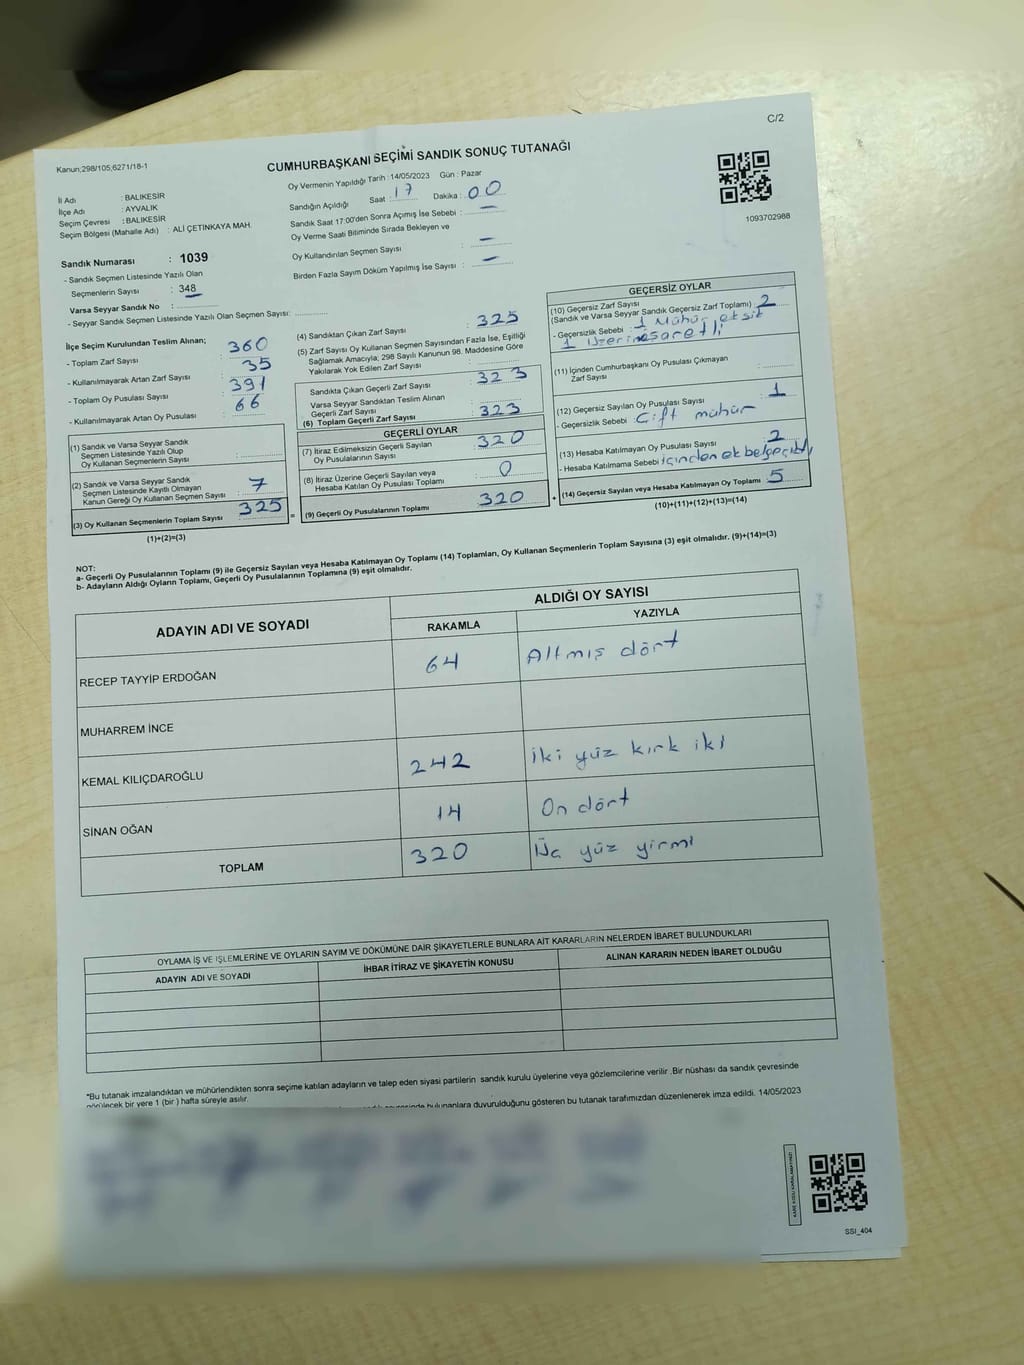 C/2
Kanun;298/105,6271/18-1
CUMHURBAŞKANI SEÇİMİ SANDIK SONUÇ TUTANAĞI
İl Adı : BALIKESİR
İlçe Adı : AYVALIK
Seçim Çevresi : BALIKESİR
Seçim Bölgesi (Mahalle Adı) : ALİ ÇETİNKAYA MAH.
Oy Vermenin Yapıldığı Tarih : 14/05/2023 Gün : Pazar
Sandığın Açıldığı Saat : 17 Dakika : 00
Sandık Saat 17:00'den Sonra Açımış İse Sebebi : —
Oy Verme Saati Bitiminde Sırada Bekleyen ve
Oy Kullandırılan Seçmen Sayısı : —
Birden Fazla Sayım Döküm Yapılmış İse Sayısı : —
1093702988
Sandık Numarası : 1039
- Sandık Seçmen Listesinde Yazılı Olan
Seçmenlerin Sayısı : 348
Varsa Seyyar Sandık No :
- Seyyar Sandık Seçmen Listesinde Yazılı Olan Seçmen Sayısı:
İlçe Seçim Kurulundan Teslim Alınan;
- Toplam Zarf Sayısı : 360
- Kullanılmayarak Artan Zarf Sayısı : 35
- Toplam Oy Pusulası Sayısı : 391
- Kullanılmayarak Artan Oy Pusulası : 66
(1) Sandık ve Varsa Seyyar Sandık
Seçmen Listesinde Yazılı Olup
Oy Kullanan Seçmenlerin Sayısı :
(2) Sandık ve Varsa Seyyar Sandık
Seçmen Listesinde Kayıtlı Olmayan
Kanun Gereği Oy Kullanan Seçmen Sayısı : 7
(3) Oy Kullanan Seçmenlerin Toplam Sayısı : 325
(1)+(2)=(3)
(4) Sandıktan Çıkan Zarf Sayısı : 325
(5) Zarf Sayısı Oy Kullanan Seçmen Sayısından Fazla İse, Eşitliği
Sağlamak Amacıyla; 298 Sayılı Kanunun 98. Maddesine Göre
Yakılarak Yok Edilen Zarf Sayısı :
Sandıkta Çıkan Geçerli Zarf Sayısı : 323
Varsa Seyyar Sandıktan Teslim Alınan
Geçerli Zarf Sayısı :
(6) Toplam Geçerli Zarf Sayısı : 323
GEÇERLİ OYLAR
(7) İtiraz Edilmeksizin Geçerli Sayılan
Oy Pusulalarının Sayısı : 320
(8) İtiraz Üzerine Geçerli Sayılan veya
Hesaba Katılan Oy Pusulası Toplamı : 0
= (9) Geçerli Oy Pusulalarının Toplamı : 320
GEÇERSİZ OYLAR
(10) Geçersiz Zarf Sayısı
(Sandık ve Varsa Seyyar Sandık Geçersiz Zarf Toplamı) : 2
- Geçersizlik Sebebi : 1 Mühür eksik
1 üzeri işaretli
(11) İçinden Cumhurbaşkanı Oy Pusulası Çıkmayan
Zarf Sayısı :
(12) Geçersiz Sayılan Oy Pusulası Sayısı : 1
- Geçersizlik Sebebi : Çift mühür
(13) Hesaba Katılmayan Oy Pusulası Sayısı : 2
- Hesaba Katılmama Sebebi : içinden ek belge
+ (14) Geçersiz Sayılan veya Hesaba Katılmayan Oy Toplamı : 5
(10)+(11)+(12)+(13)=(14)
NOT:
a- Geçerli Oy Pusulalarının Toplamı (9) ile Geçersiz Sayılan veya Hesaba Katılmayan Oy Toplamı (14) Toplamları, Oy Kullanan Seçmenlerin Toplam Sayısına (3) eşit olmalıdır. (9)+(14)=(3)
b- Adayların Aldığı Oyların Toplamı, Geçerli Oy Pusulalarının Toplamına (9) eşit olmalıdır.
ADAYIN ADI VE SOYADI ALDIĞI OY SAYISI
RAKAMLA YAZIYLA
RECEP TAYYİP ERDOĞAN 64 Altmış dört
MUHARREM İNCE
KEMAL KILIÇDAROĞLU 242 İki yüz kırk iki
SİNAN OĞAN 14 On dört
TOPLAM 320 Üç yüz yirmi
OYLAMA İŞ VE İŞLEMLERİNE VE OYLARIN SAYIM VE DÖKÜMÜNE DAİR ŞİKAYETLERLE BUNLARA AİT KARARLARIN NELERDEN İBARET BULUNDUKLARI
ADAYIN ADI VE SOYADI İHBAR İTİRAZ VE ŞİKAYETİN KONUSU ALINAN KARARIN NEDEN İBARET OLDUĞU
*Bu tutanak imzalandıktan ve mühürlendikten sonra seçime katılan adayların ve talep eden siyasi partilerin sandık kurulu üyelerine veya gözlemcilerine verilir .Bir nüshası da sandık çevresinde
görülecek bir yere 1 (bir ) hafta süreyle asılır.
bulunanlara duyurulduğunu gösteren bu tutanak tarafımızdan düzenlenerek imza edildi. 14/05/2023
KARE KODU KARALAMAYINIZ!
SSI_404